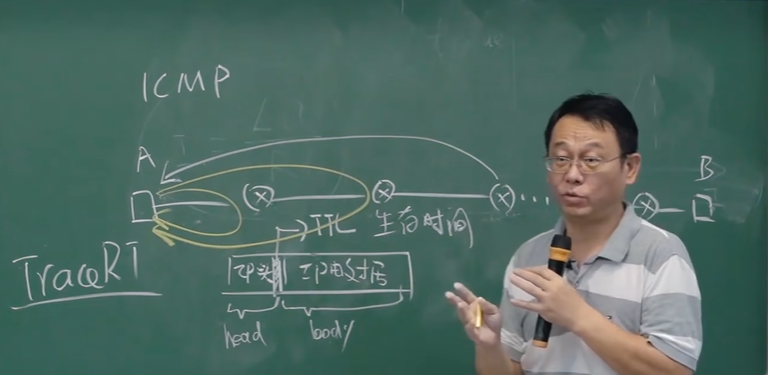 ICMP
A
B
TTL 生存时间
TraceRT
IP头 IP数据
head body